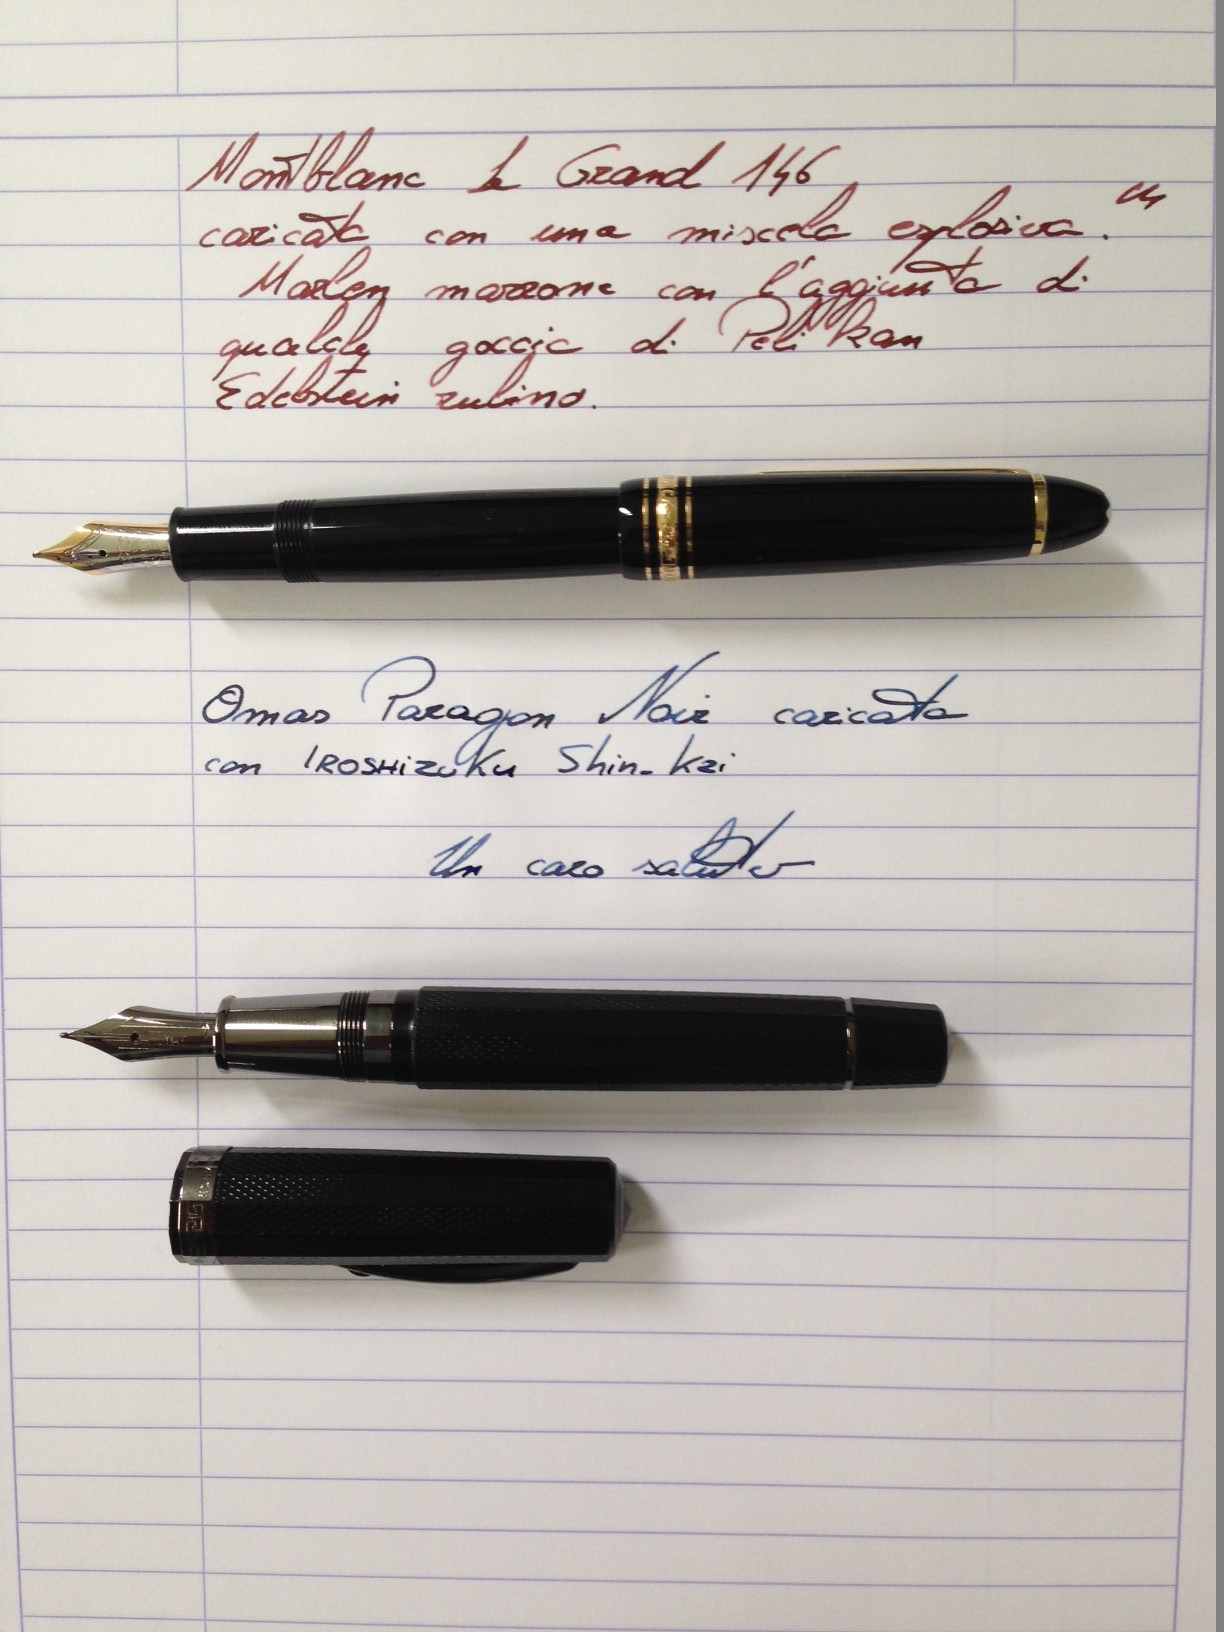 Montblanc Le Grand 146
caricata con una miscela esplosiva. "
Marlen marrone con l'aggiunta di
qualche goccia di Pelikan
Edelstein rubino.
Omas Paragon Noir caricata
con IROSHIZUKU Shin-kai
Un caro saluto